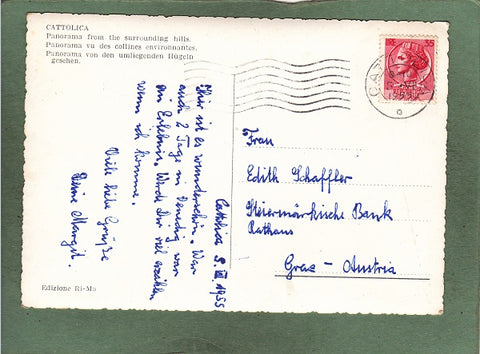 CATTOLICA
Panorama from the surrounding hills.
Panorama vu des collines environnantes.
Panorama von den umliegenden Hügeln
gesehen.
Cattolica 1955
Hier ist es wunderschön. War
auch 2 Tage in Venedig war
ein Erlebnis. Werde Dir viel erzählen
wenn ich komme.
Viele liebe Grüße
Deine Margit.
Edizione Ri-Ma
35
Frau
Edith Schaffler
Steiermärkische Bank
Rathaus
Graz - Austria